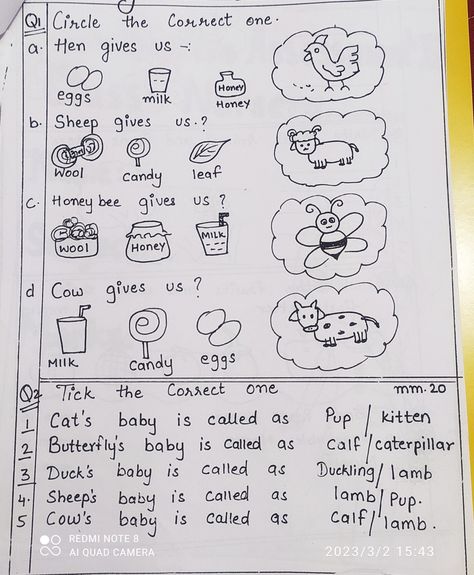 Q1 Circle the Correct one.
a. Hen gives us -:
eggs milk Honey
Honey
b. Sheep gives us.?
wool candy leaf
c. Honey bee gives us ?
wool Honey MILK
d Cow gives us ?
MILK candy eggs
Q2 Tick the Correct one mm.20
1 Cat's baby is called as Pup / kitten
2 Butterfly's baby is called as calf / caterpillar
3 Duck's baby is called as Duckling / lamb
4. Sheep's baby is called as lamb / Pup.
5 Cow's baby is called as calf / lamb.
REDMI NOTE 8
AI QUAD CAMERA
2023/3/2 15:43